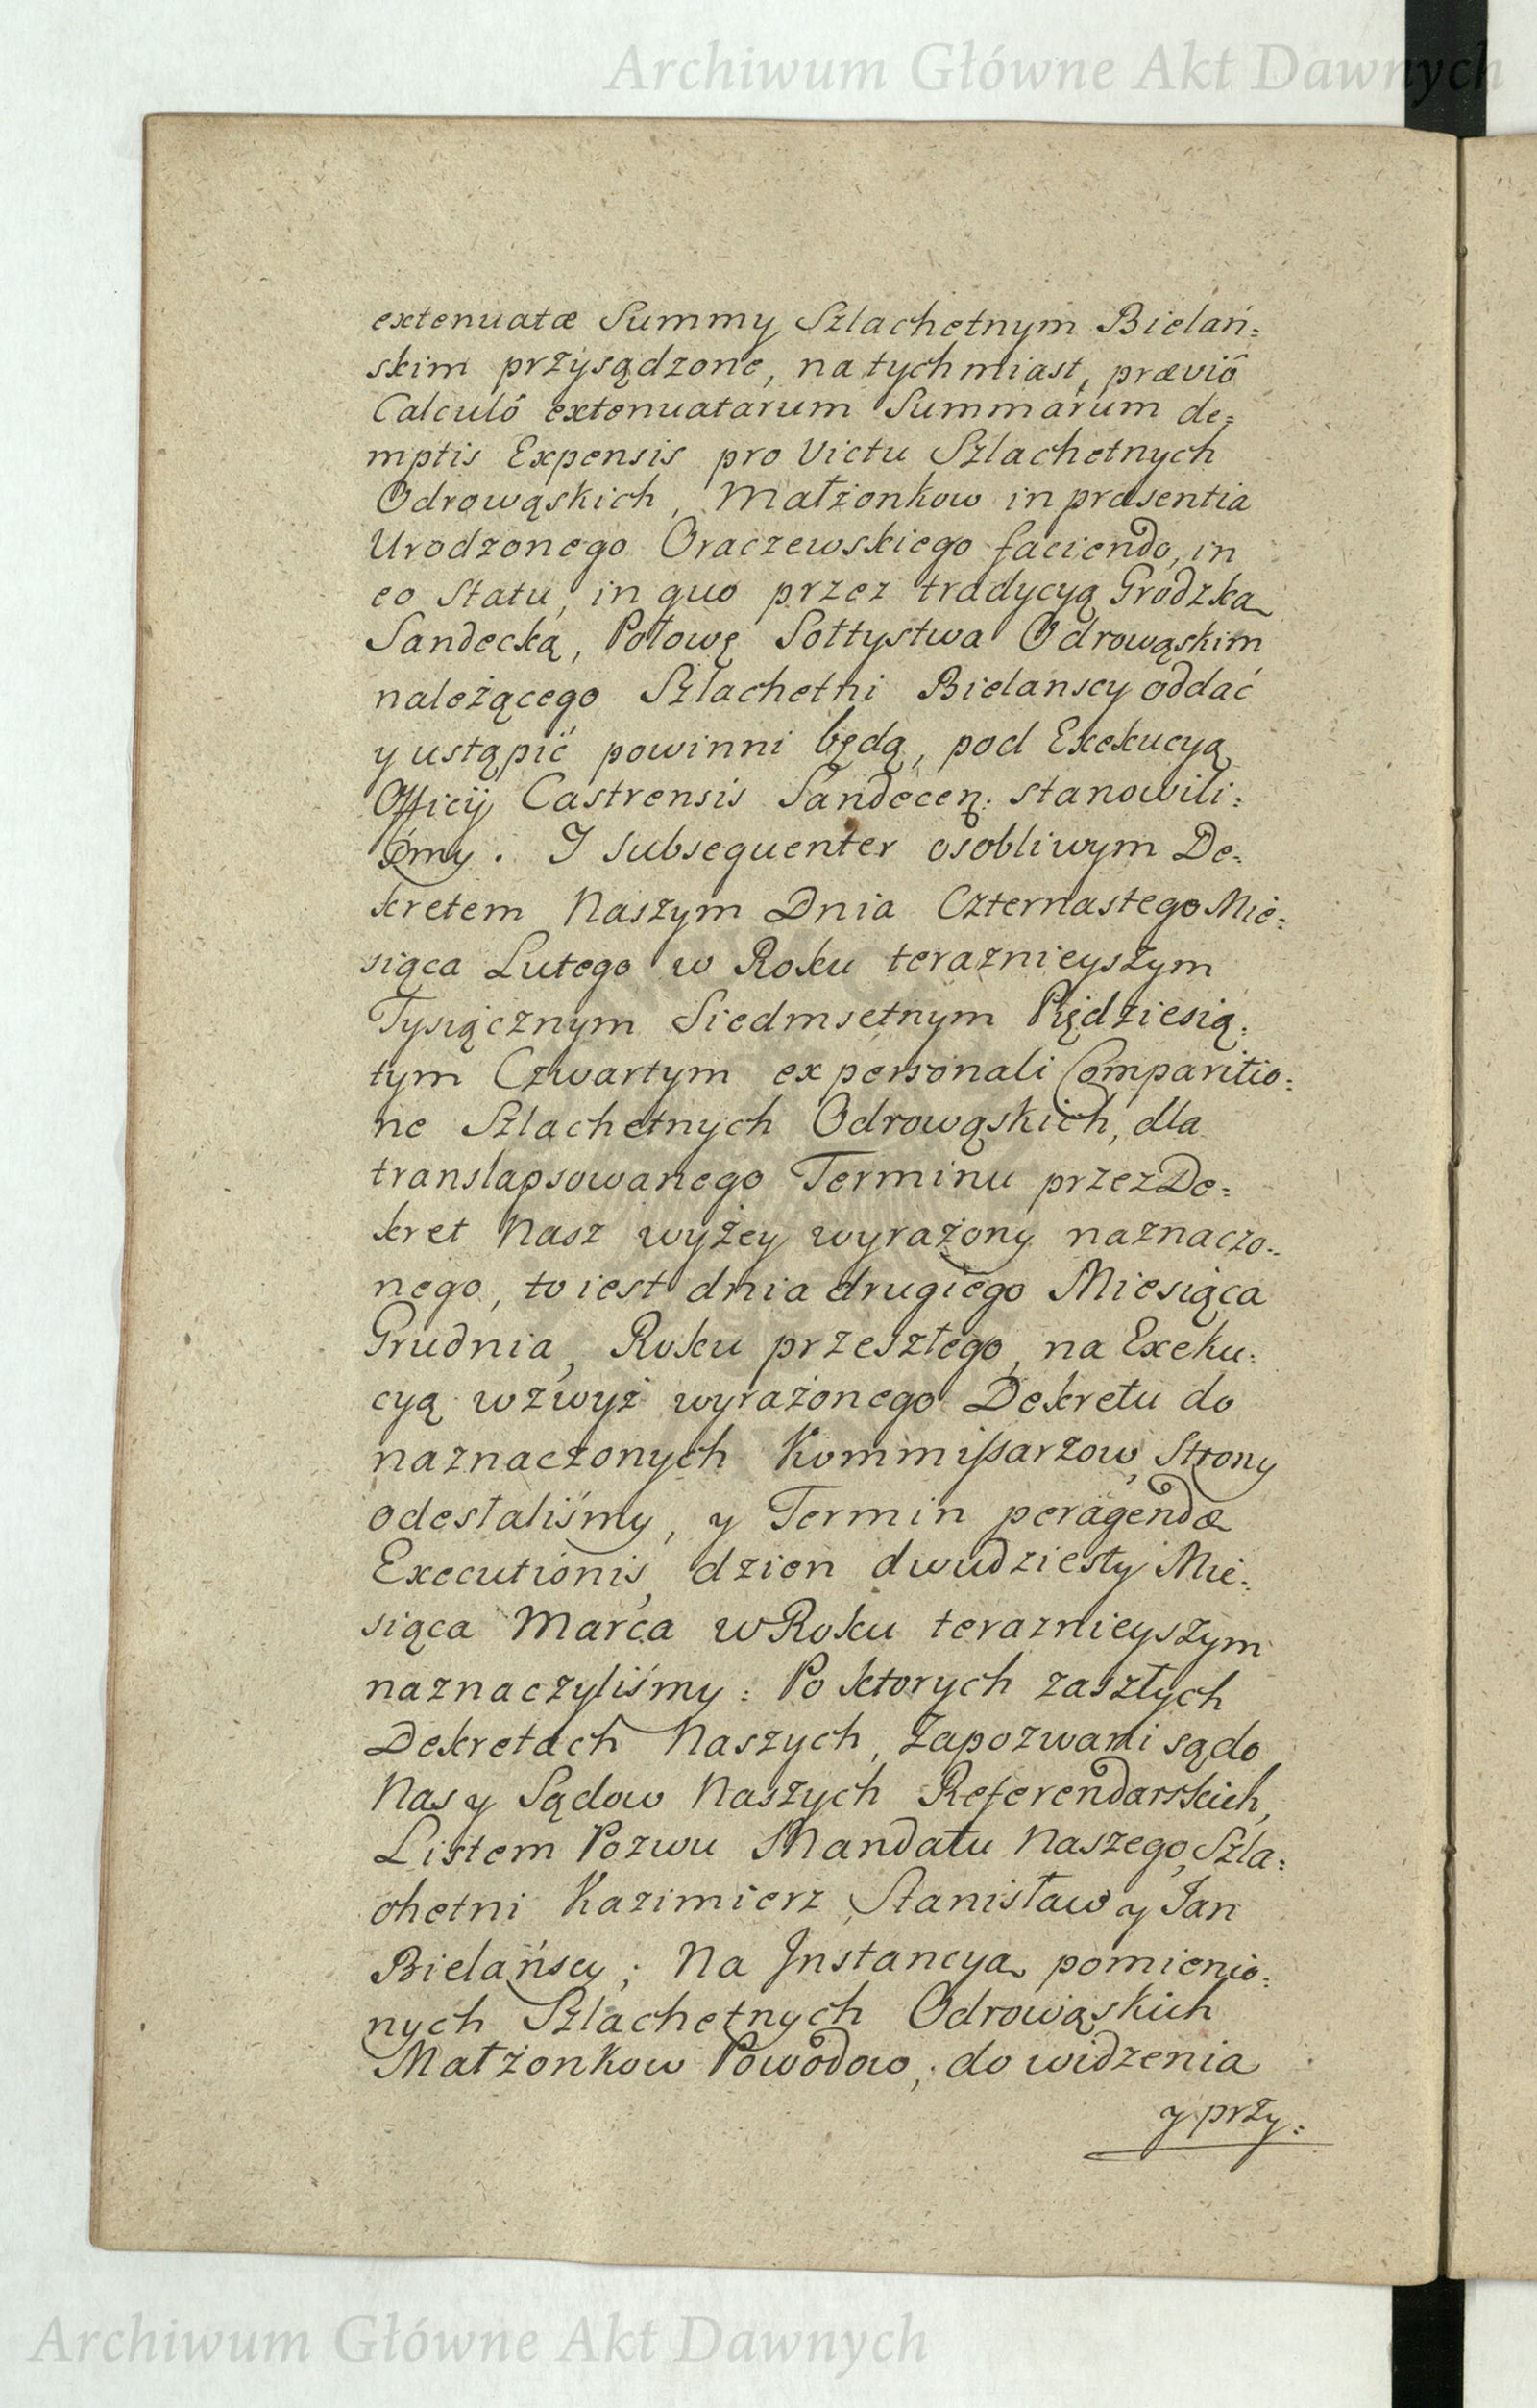 Archiwum Główne Akt Dawnych
extenuatæ Summy Szlachetnym Bielań=
skim przysądzone, natychmiast, præviô
Calculô extenuatarum Summarum de=
mptis Expensis pro Victu Szlachetnych
Odrowąskich, Małżonkow in præsentia
Urodzonego Oraczewskiego faciendo, in
eo Statu, in quo przez tradycyą Grodzką
Sandecką, Połowę Sołtystwa Odrowąskim
należącego Szlachetni Bielanscy oddać
y ustąpić powinni będą, pod Exekucyą
Officij Castrensis Sandecen: stanowili=
śmy. I subsequenter osobliwym De=
kretem Naszym Dnia Czternastego Mie=
siąca Lutego w Roku teraznieyszym
Tysiącznym Siedmsetnym Piędziesią=
tym Czwartym ex personali Comparitio=
ne Szlachetnych Odrowąskich, dla
translapsowanego Terminu przez De=
kret Nasz wyżey wyrażony naznaczo=
nego, to iest dnia drugiego Miesiąca
Grudnia, Roku przeszłego, na Exeku=
cyą wzwyż wyrażonego Dekretu do
naznaczonych Kommißarzow, Strony
odesłaliśmy, y Termin peragendæ
Executionis, dzien dwudziesty Mie=
siąca Marca w Roku teraznieyszym
naznaczyliśmy: Po ktorych zaszłych
Dekretach Naszych, Zapozwani są do
Nas y Sądow Naszych Referendarskich,
Listem Pozwu Mandatu Naszego, Szla=
chetni Kazimierz, Stanisław y Jan
Bielańscy; Na Instancyą pomienio=
nych Szlachetnych Odrowąskich
Małżonkow Powodow, do widzenia
y przy=
Archiwum Główne Akt Dawnych